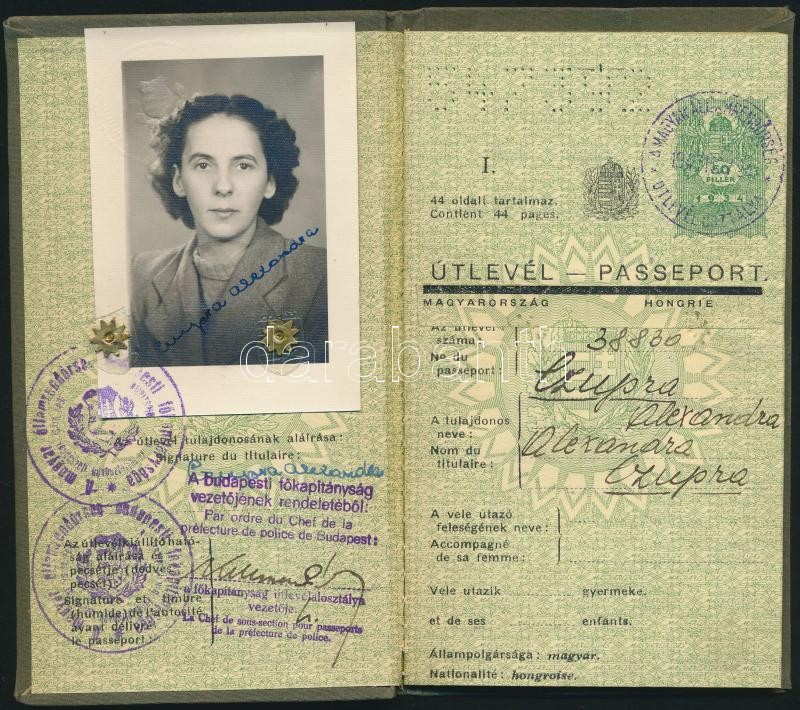 Czupra Alexandra
Az útlevél tulajdonosának aláírása:
Signature du titulaire:
Czupra Alexandra
A budapesti főkapitányság
vezetőjének rendeletéből:
Par ordre du Chef de la
préfecture de police de Budapest:
Az útlevélkiállító ható-
ság aláírása és
pecsétje (nedves
pecsét):
Signature et timbre
(humide) de l'autorité
ayant délivré
le passeport:
a főkapitányság útlevélalosztálya
vezetője.
Le Chef de sous-section pour passeports
de la préfecture de police.
I.
44 oldalt tartalmaz.
Contient 44 pages.
A MAGYAR ÁLLAMRENDŐRSÉG
ÚTLEVÉLOSZTÁLYA
50
FILLÉR
1934
ÚTLEVÉL — PASSEPORT.
MAGYARORSZÁG HONGRIE
Az útlevél
száma:
No du
passeport:
38830
Czupra
Alexandra
A tulajdonos
neve:
Nom du
titulaire:
Alexandra
Czupra
A vele utazó
feleségének neve:
Accompagné
de sa femme:
Vele utazik gyermeke.
et de ses enfants.
Állampolgársága: magyar.
Nationalité: hongroise.
darabanth